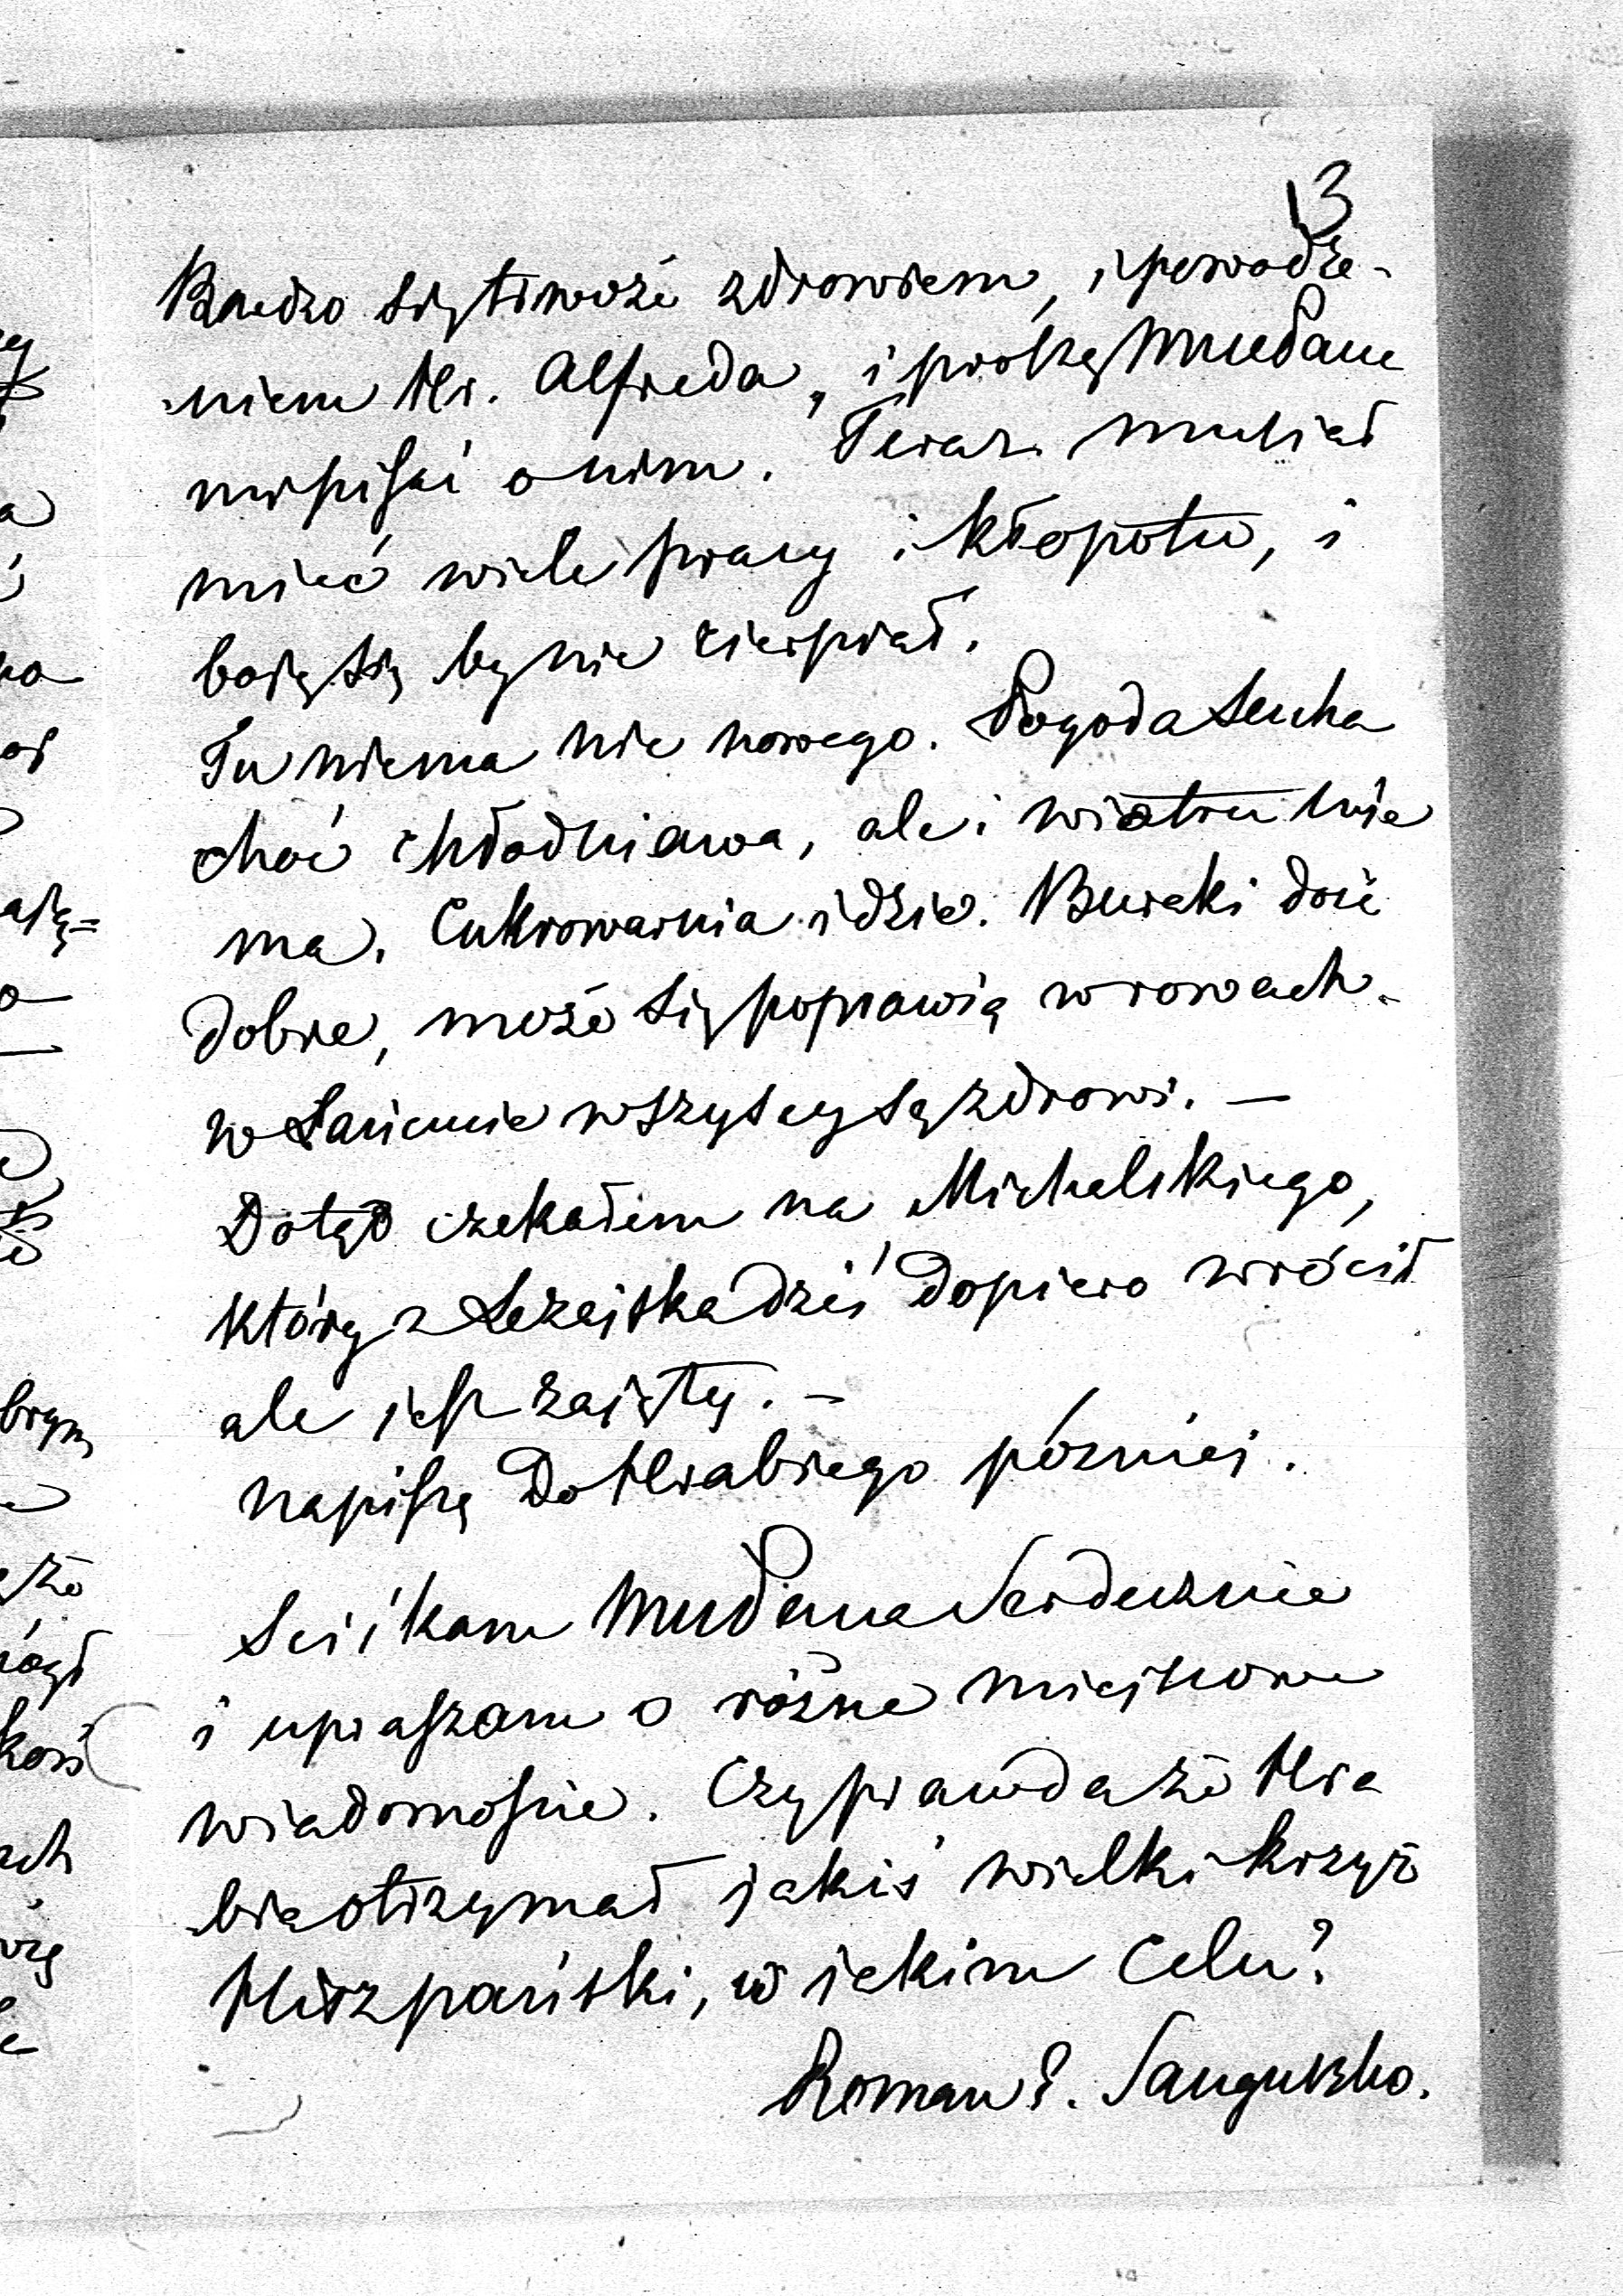 13
Bardzo się trwożę zdrowiem, i powodze-
niem Hr. Alfreda, i proszę WMuPana
mi pisać o nim. Teraz musiał
mieć wiele pracy i kłopotu, i
boję się by nie cierpiał.
Tu niema nic nowego. Pogoda sucha
choć chłodniawa, ale i wiatru nie
ma. Cukrowarnia idzie. Buraki dość
dobre, może się poprawią w rowach.
w Łańcucie wszyscy są zdrowi. —
Dotąd czekałem na Michalskiego,
który z Leżajska dziś dopiero wrócił
ale jest zajęty. —
napiszę do Hrabiego później.
Sciskam WMuPana Serdecznie
i upraszam o różne miejscowe
wiadomoście. Czy prawda że Hra
bia otrzymał jakiś wielki krzyż
Hiszpański, w jakim celu?
Roman S. Sanguszko.